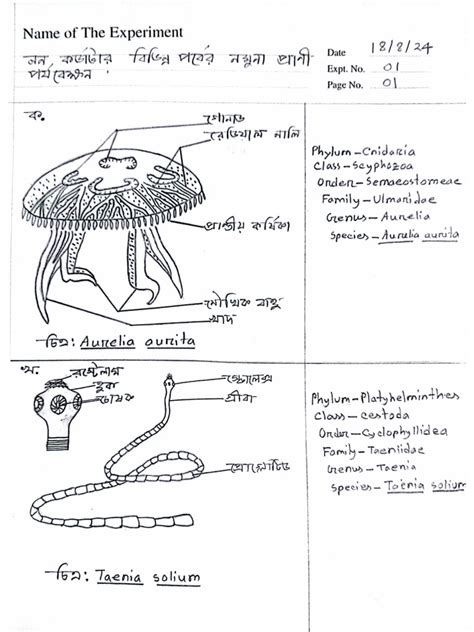 Name of The Experiment
নন কর্ডাটার বিভিন্ন পর্বের নমুনা প্রাণী
পর্যবেক্ষন
Date 18/8/24
Expt. No. 01
Page No. 01
ক.
গোনাড
রেডিয়াল নালি
প্রান্তীয় কর্ষিকা
মৌখিক বাহু
খাদ
চিত্র: Aurelia aurita
Phylum – Cnidaria
Class – Scyphozoa
Order – Semaeostomeae
Family – Ulmanidae
Genus – Aurelia
Species – Aurelia aurita
খ.
রস্টেলাম
হুক
চোষক
স্কোলেক্স
গ্রীবা
প্রোগ্লটিড
চিত্র: Taenia solium
Phylum – Platyhelminthes
Class – cestoda
Order – Cyclophyllidea
Family – Taeniidae
Genus – Taenia
Species – Taenia solium